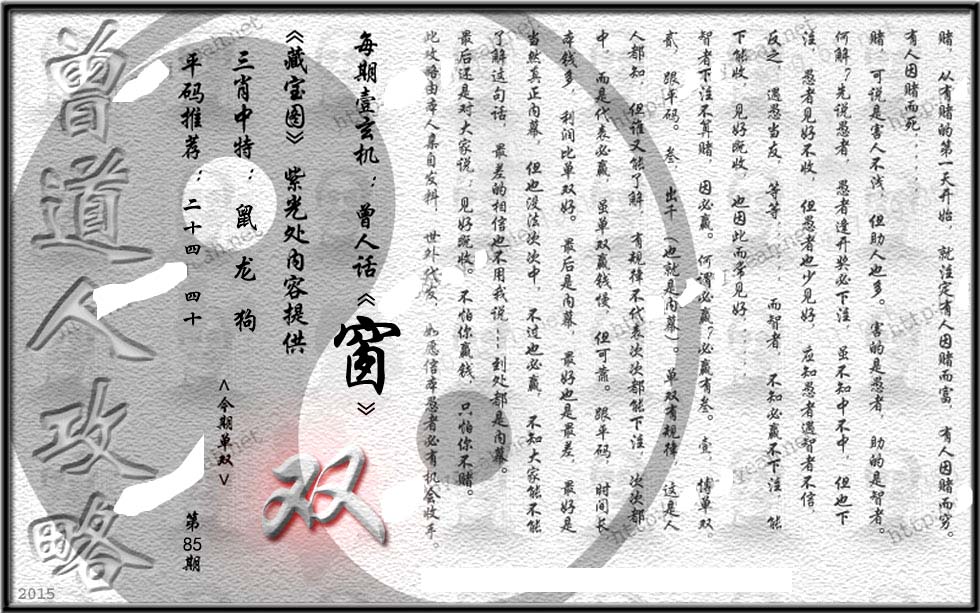 赌, 从有赌的第一天开始, 就注定有人因赌而富, 有人因赌而穷。
有人因赌而死......
赌, 可说是害人不浅, 但助人也多。 害的是愚者, 助的是智者。
何解?先说愚者, 愚者逢开奖必下注, 虽不知中不中, 但也下
注, 愚者见好不收, 但愚者也少见好, 应知愚者遇智者不信,
反之, 遇愚当友, 等等...... 而智者, 不知必赢不下注, 能
下能收, 见好既收, 也因此而常见好......
智者下注不算赌, 因必赢。 何谓必赢?必赢有叁。 壹, 博单双.
贰, 跟平码。 叁, 出千 (也就是内幕)。 单双有规律, 这是人
人都知, 但谁又能了解, 有规律不代表次次都能下注, 次次都
中, 而是代表必赢, 虽单双赢钱慢, 但可靠。 跟平码, 时间长
本钱多, 利润比单双好。 最后是内幕, 最好也是最差, 最好是
当然真正内幕, 但也没法次次中, 不过也必赢, 不知大家能不能
了解这句话, 最差的相信也不用我说...到处都是内幕。
最后还是对大家说:见好既收。不怕你赢钱, 只怕你不赌。
此攻略由本人集自发料, 世外代发, 如愿信本愚者必有机会收手。
每期壹玄机: 曾人话《窗》
《藏宝图》 紫光处内容提供
三肖中特: 鼠 龙 狗
<今期单双>
双
平码推荐: 二十四 四十
第85期
曾道人攻略
2015